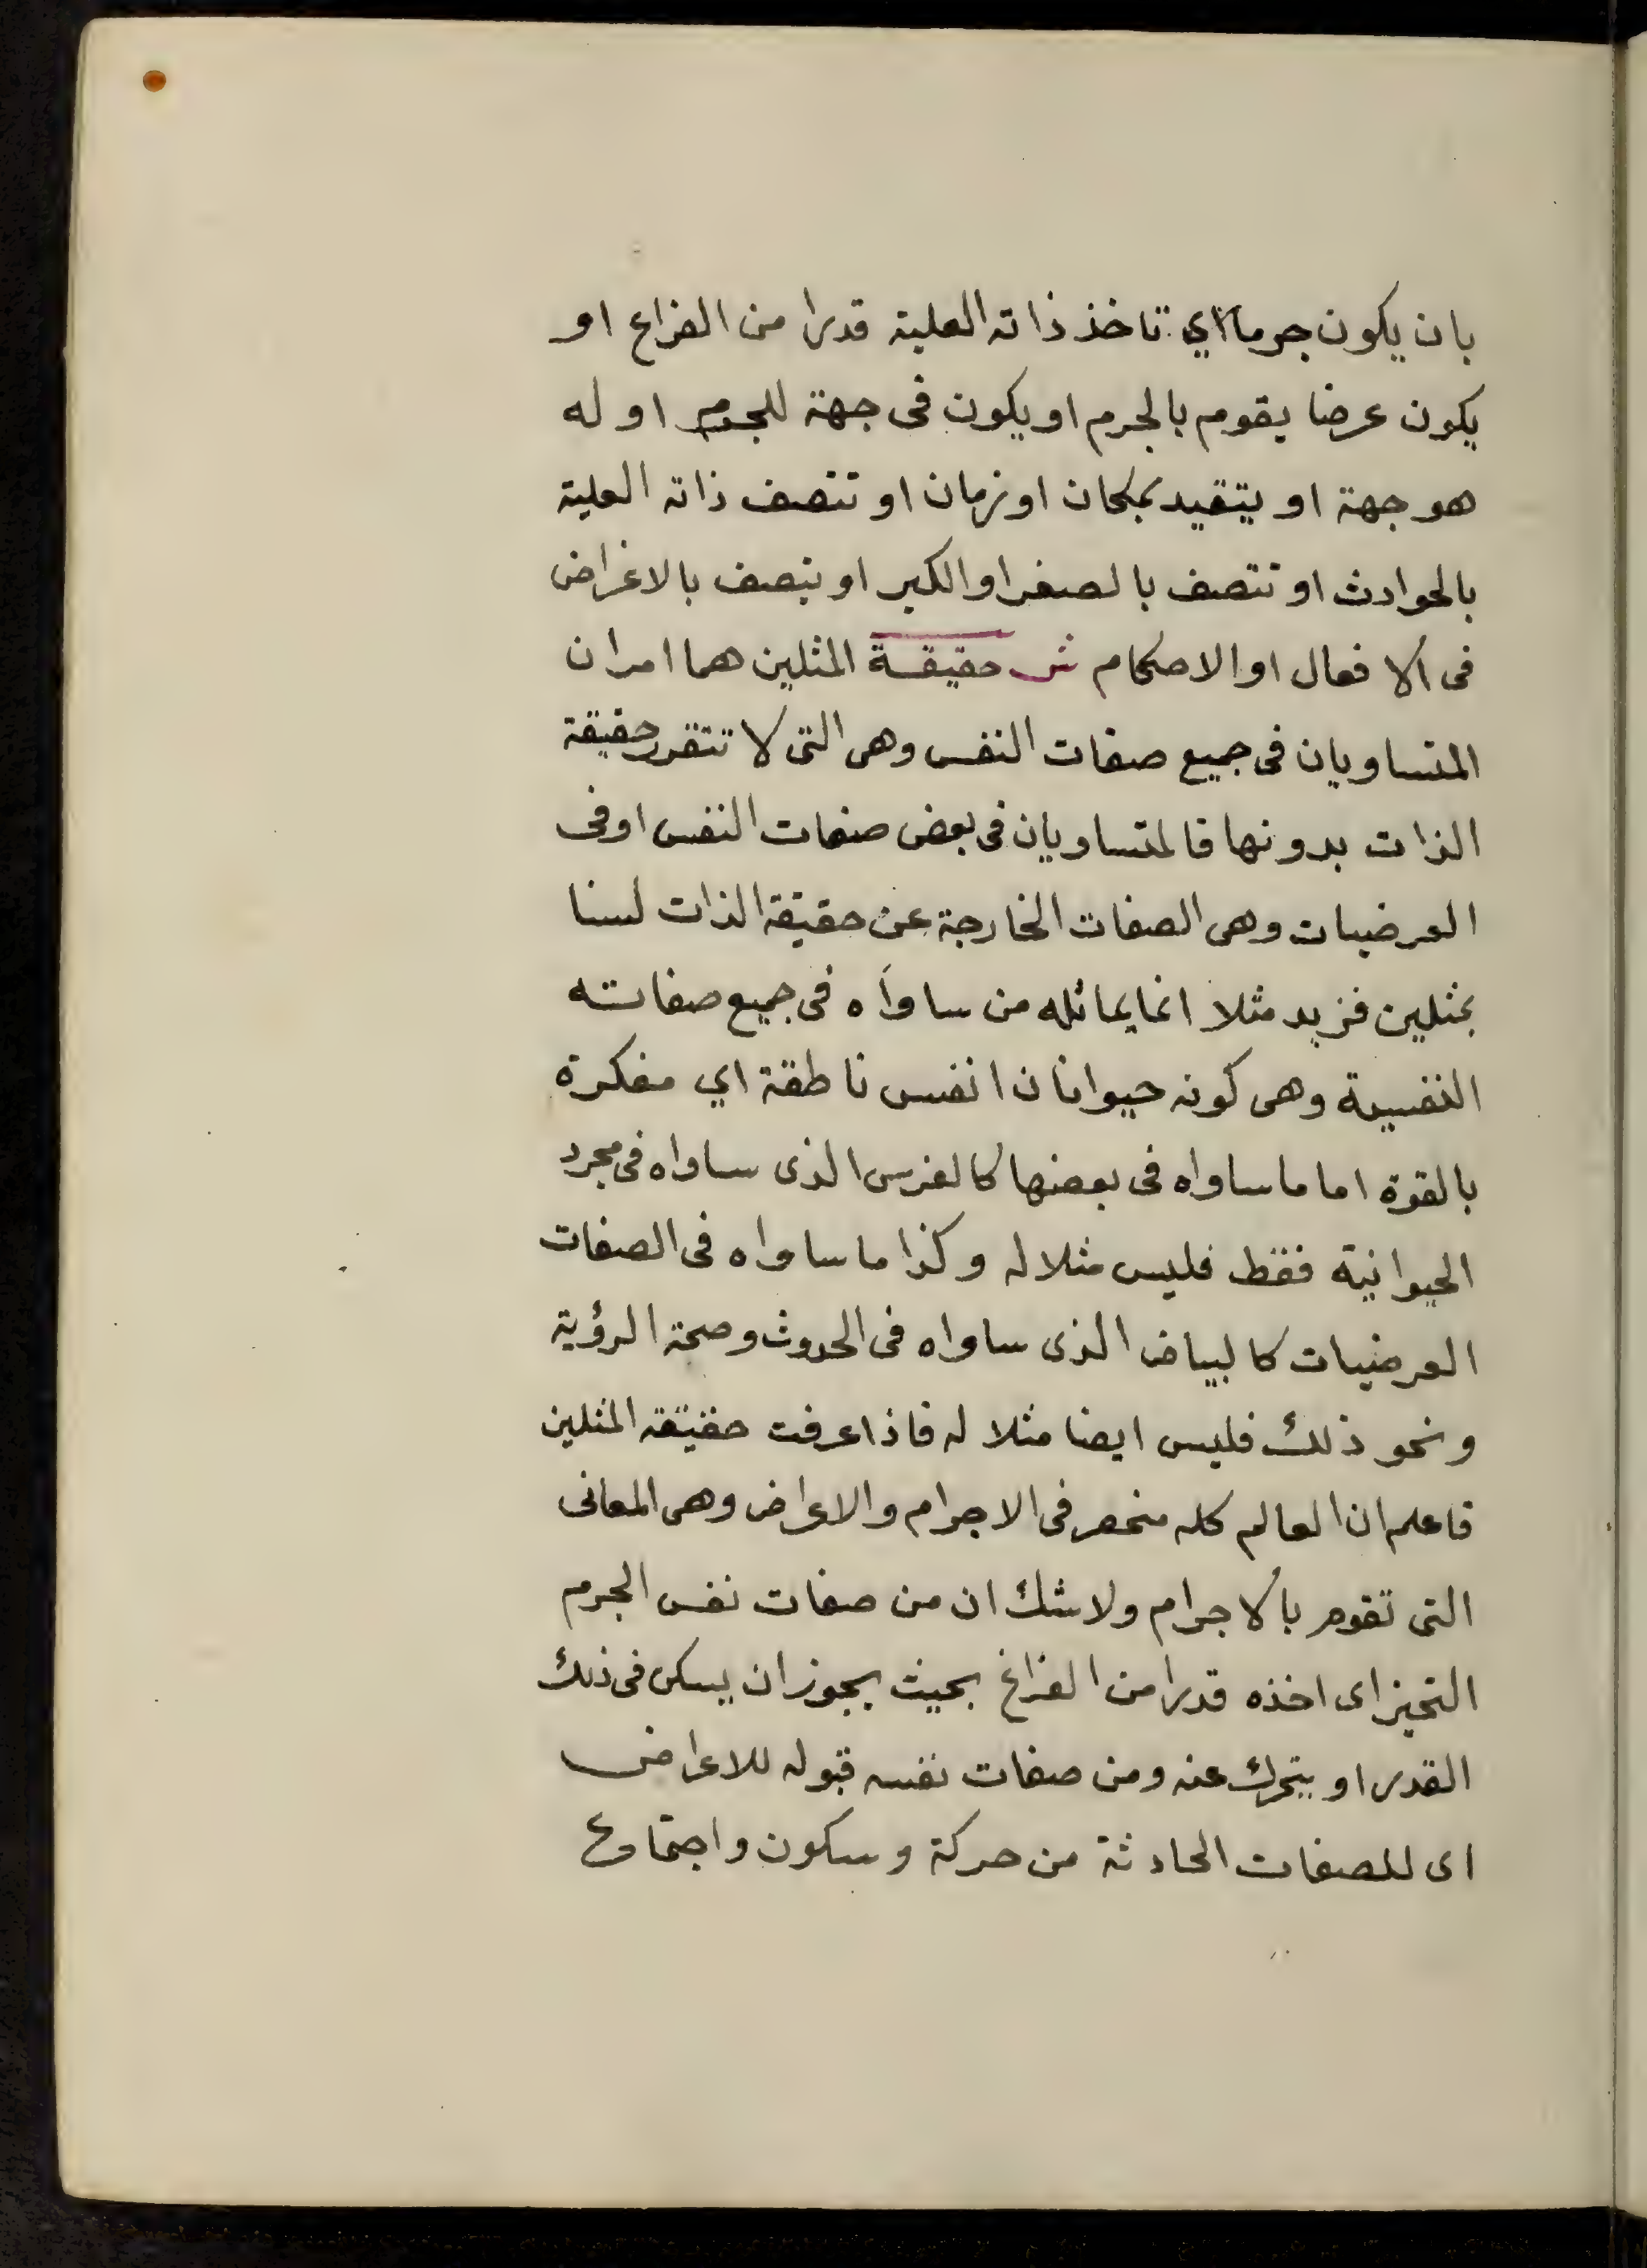 بان يكون جرما اي تاخذ ذاته العلية قدرا من الفراغ او
يكون عرضا يقوم بالجرم او يكون فى جهة للجرم او له
هو جهة او يتقيد بمكان او زمان او تتصف ذاته العلية
بالحوادث او تتصف بالصغر او الكبر او يتصف بالاغراض
فى الافعال او الاحكام ش حقيقة المثلين هما امران
المتساويان فى جميع صفات النفس وهى التى لا تتقرر حقيقة
الذات بدونها فالمتساويان فى بعض صفات النفس او فى
العرضيات وهى الصفات الخارجة عن حقيقة الذات لسنا
بمثلين فزيد مثلا انما يماثله من ساواه فى جميع صفاته
النفسية وهى كونه حيوانا ذا نفس ناطقة اي مفكرة
بالقوة اما ما ساواه فى بعضها كالفرس الذى ساواه فى مجرد
الحيوانية فقط فليس مثلا له وكذا ما ساواه فى الصفات
العرضيات كالبياض الذى ساواه فى الحدوث وصحة الرؤية
ونحو ذلك فليس ايضا مثلا له فاذا عرفت حقيقة المثلين
فاعلم ان العالم كله منحصر فى الاجرام والاعراض وهى المعانى
التى تقوم بالاجرام ولا شك ان من صفات نفس الجرم
التحيز اى اخذه قدرا من الفراغ بحيث يجوز ان يسكن فى ذلك
القدر او يتحرك عنه ومن صفات نفسه قبوله للاعراض
اى للصفات الحادثة من حركة وسكون واجتماع